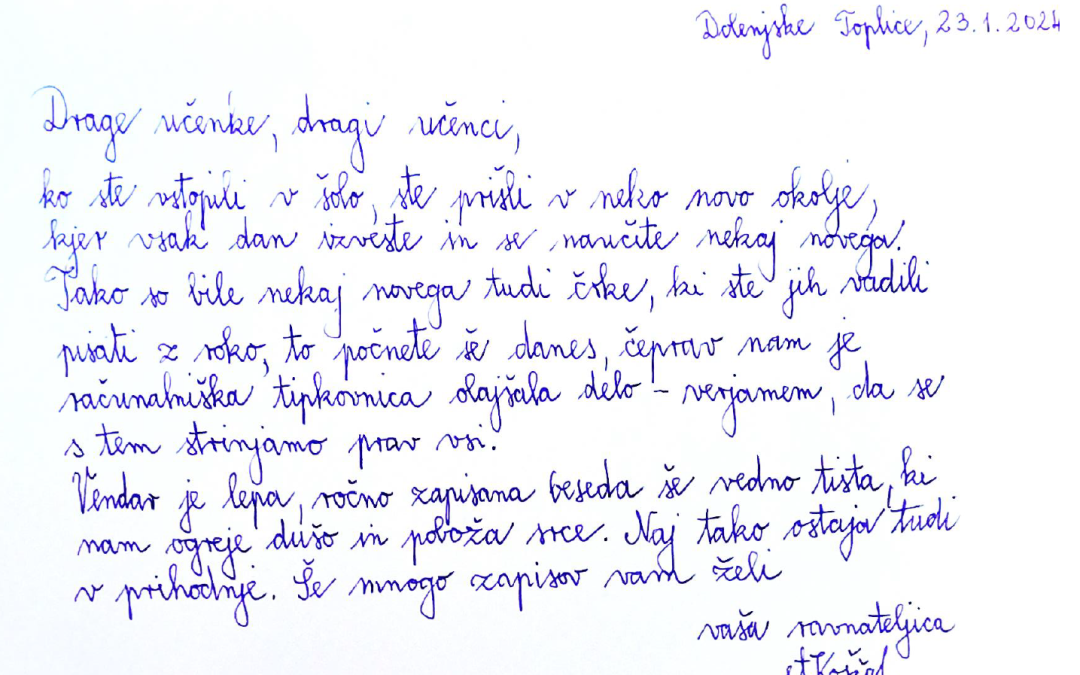 Dolenjske Toplice, 23.1.2024
Drage učenke, dragi učenci,
ko ste vstopili v šolo, ste prišli v neko novo okolje,
kjer vsak dan izveste in se naučite nekaj novega.
Tako so bile nekaj novega tudi črke, ki ste jih vadili
pisati z roko, to počnete še danes, čeprav nam je
računalniška tipkovnica olajšala delo – verjamem, da se
s tem strinjamo prav vsi.
Vendar je lepa, ročno zapisana beseda še vedno tista, ki
nam ogreje dušo in poboža srce. Naj tako ostaja tudi
v prihodnje. Še mnogo zapisov vam želi
vaša ravnateljica